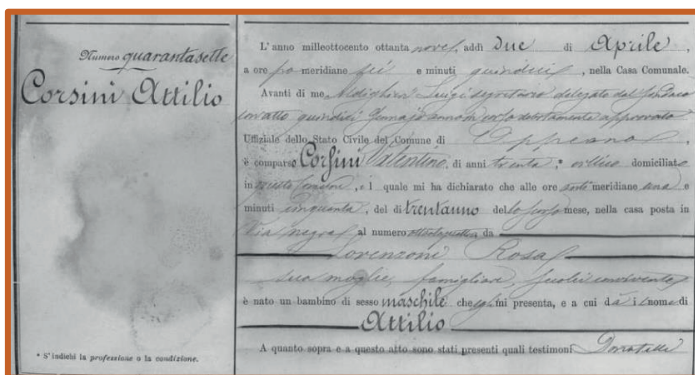 Numero quarantasette
Corsini Attilio
* S'indichi la professione o la condizione.
L'anno milleottocento ottanta nove, addì Due di Aprile,
a ore po meridiane sei e minuti quindici, nella Casa Comunale.
Avanti di me Aldighieri Luigi segretario delegato dal Sindaco
con atto quindici Gennajo anno in corso debitamente approvato
Uffiziale dello Stato Civile del Comune di Oppeano,
è comparso Corsini Valentino, di anni trenta, domiciliato
in questo Comune, il quale mi ha dichiarato che alle ore anti meridiane una e
minuti cinquanta, del dì trentuno dello scorso mese, nella casa posta in
Via al numero da
Lorenzoni Rosa
sua moglie, seco lui convivente
è nato un bambino di sesso maschile che mi presenta, e a cui dà i nome di
Attilio
A quanto sopra e a questo atto sono stati presenti quali testimoni Donatelli